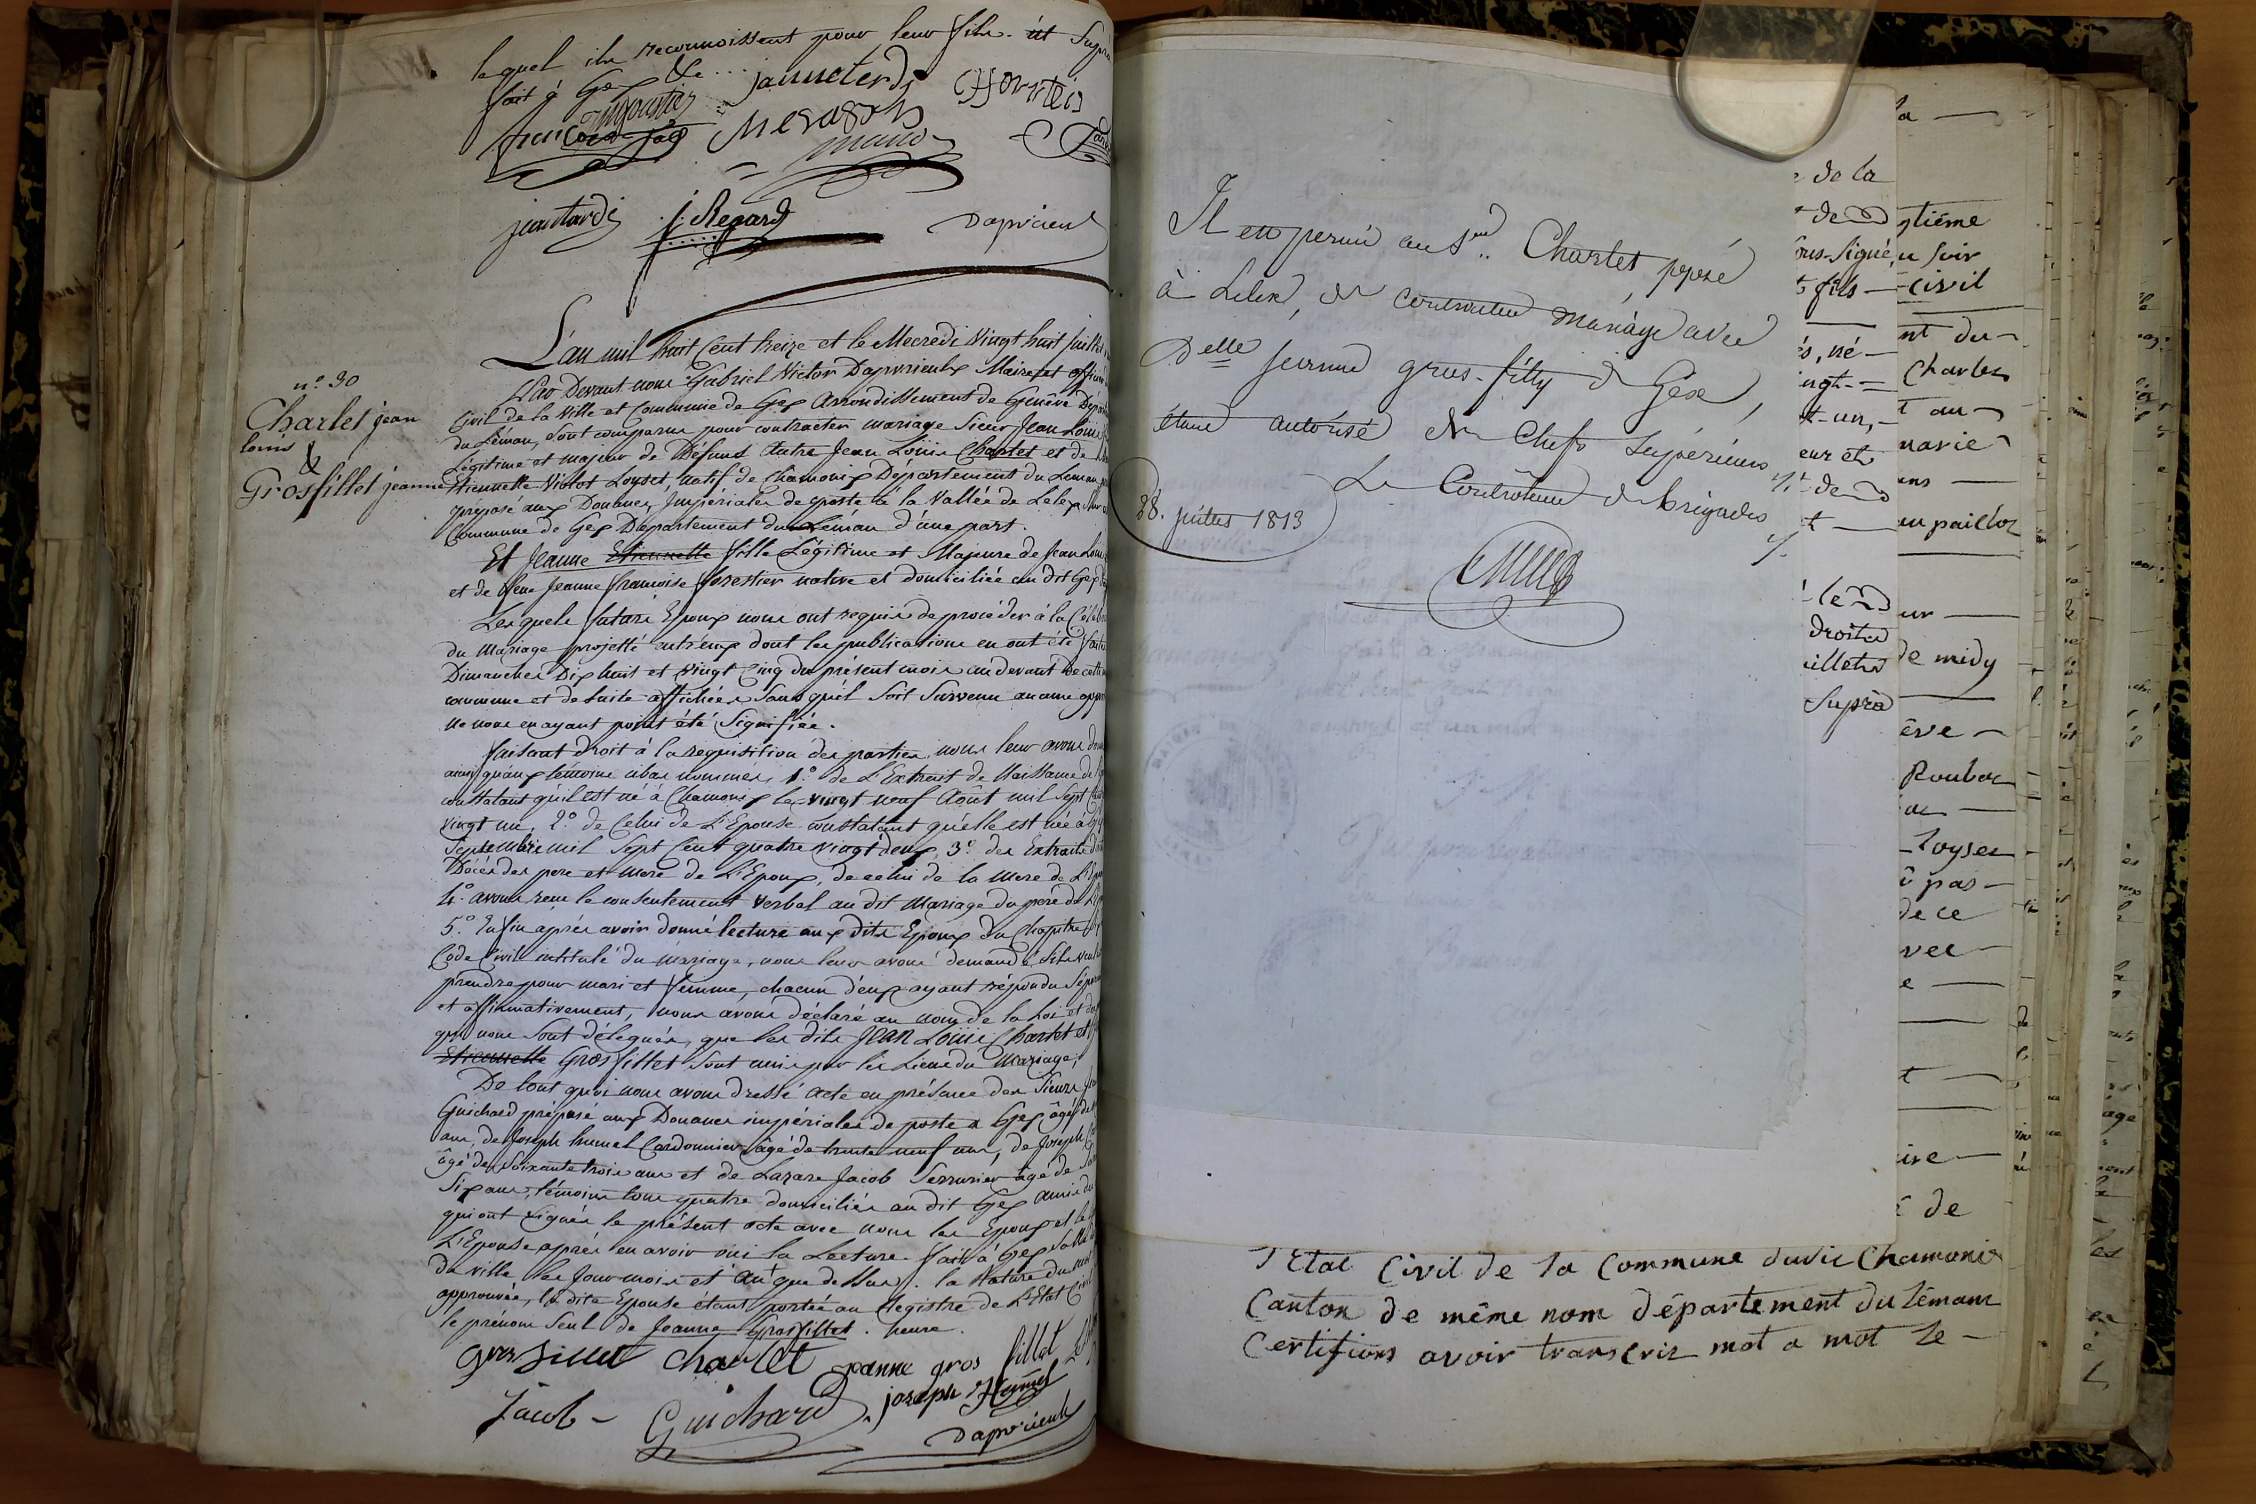 lequel ils reconnoissent pour leur fils. ut Supra
fait à Gex &c...
jannoterdi
jantardi
J: Regard
Dapvrieulx
L'an mil huit Cent treize et le Mecredi Vingt huit Juillet
Par Devant nous Gabriel Victor Dapvrieulx Maire et officier
Civil de la Ville et Commune de Gex Arrondissement de Genêve Dépar
n.° 30
Charlet jean
louis
&
Grosfillet jeanne
du Léman, Sont comparus pour contracter mariage Sieur Jean Louis
Légitime et majeur de Défunt Autre Jean Louis Charlet et de
Etiennette Violot Loyset, natif de Chamonix Département du Leman,
préposé aux Douanes Impériales de poste à la Vallée de Lelex
Commune de Gex Département du Leman d'une part.
Et Jeanne Etiennette fille Légitime et Majeure de Jean Louis
et de feue Jeanne françoise forestier native et domiciliée au dit Gex
Lesquels futurs Epoux nous ont requis de procéder à la Célébra
du Mariage projetté entr'eux dont les publications en ont été faites
Dimanches Dix huit et Vingt Cinq du présent mois au devant de cette
commune et de suite affichées Sans qu'il Soit Survenu aucune oppo
ne nous en ayant point été Signifiée.
faisant droit à la requisition des parties nous leur avons donné
ainsi qu'aux témoins cibas nommés, 1.° de L'Extrait de Naissance de l'
constatant qu'il est né à Chamonix le vingt neuf Août mil Sept Cent
Vingt un, 2.° de Celui de L'Epouse constatant qu'elle est née à
Septembre mil Sept Cent quatre vingt deux, 3.° des Extraits de
Décès des pere et mere de L'Epoux, de celui de la Mere de L'Epouse
4.° avons reçu le consentement Verbal au dit Mariage du pere de L'Ep
5.° Enfin après avoir donné lecture aux dits Epoux du Chapitre
Code Civil intitulé du mariage, nous leur avons demandé S'ils veulent
prendre pour mari et femme, chacun d'eux ayant répondu Séparé
et affirmativement, nous avons déclaré au nom de la Loi et des
qui nous Sont délégués, que les dits Jean Louis Charlet et
Etiennette Grosfillet Sont unis par les Liens du Mariage;
De tout quoi nous avons dressé acte en présence des Sieurs
Guichard préposé aux Douanes impériales de poste à Gex âgé de
ans, de Joseph humel Cordonnier âgé de trente neuf ans, de Joseph
âgé de Soixante trois ans et de Lazare Jacob Serrurier âgé de
Six ans, témoins tous quatre domiciliés au dit Gex amis du
qui ont signés le présent acte avec nous les Epoux et le
L'Epouse après en avoir oui la Lecture. fait à Gex Salle
de ville les Jour mois et an que dessus. la Rature du mot
approuvée, la dite Epouse étant portée au Registre de L'Etat Civil
le prénom Seul de Jeanne Grosfillet
gros fillet Charlet jeanne gros fillet
Jacob Guichard joseph Humel
Dapvrieulx
Il est permis au Sr. Charlet, préposé
à Lelex, de contracter mariage avec
Delle Jeanne gros-filly de Gex,
étant autorisé des Chefs Supérieurs
Le Contrôleur de brigades
28. juillet 1813
de la
sous-Signé
fils
né
vingt
un,
droite
Supra
tième
du soir
civil
Charles
marie
ans
au paillot
de midy
Loyset
pas
de ce
de
l'Etat Civil de la Commune duvie Chamonix
Canton de même nom département du Léman
Certifions avoir transcrit mot a mot le